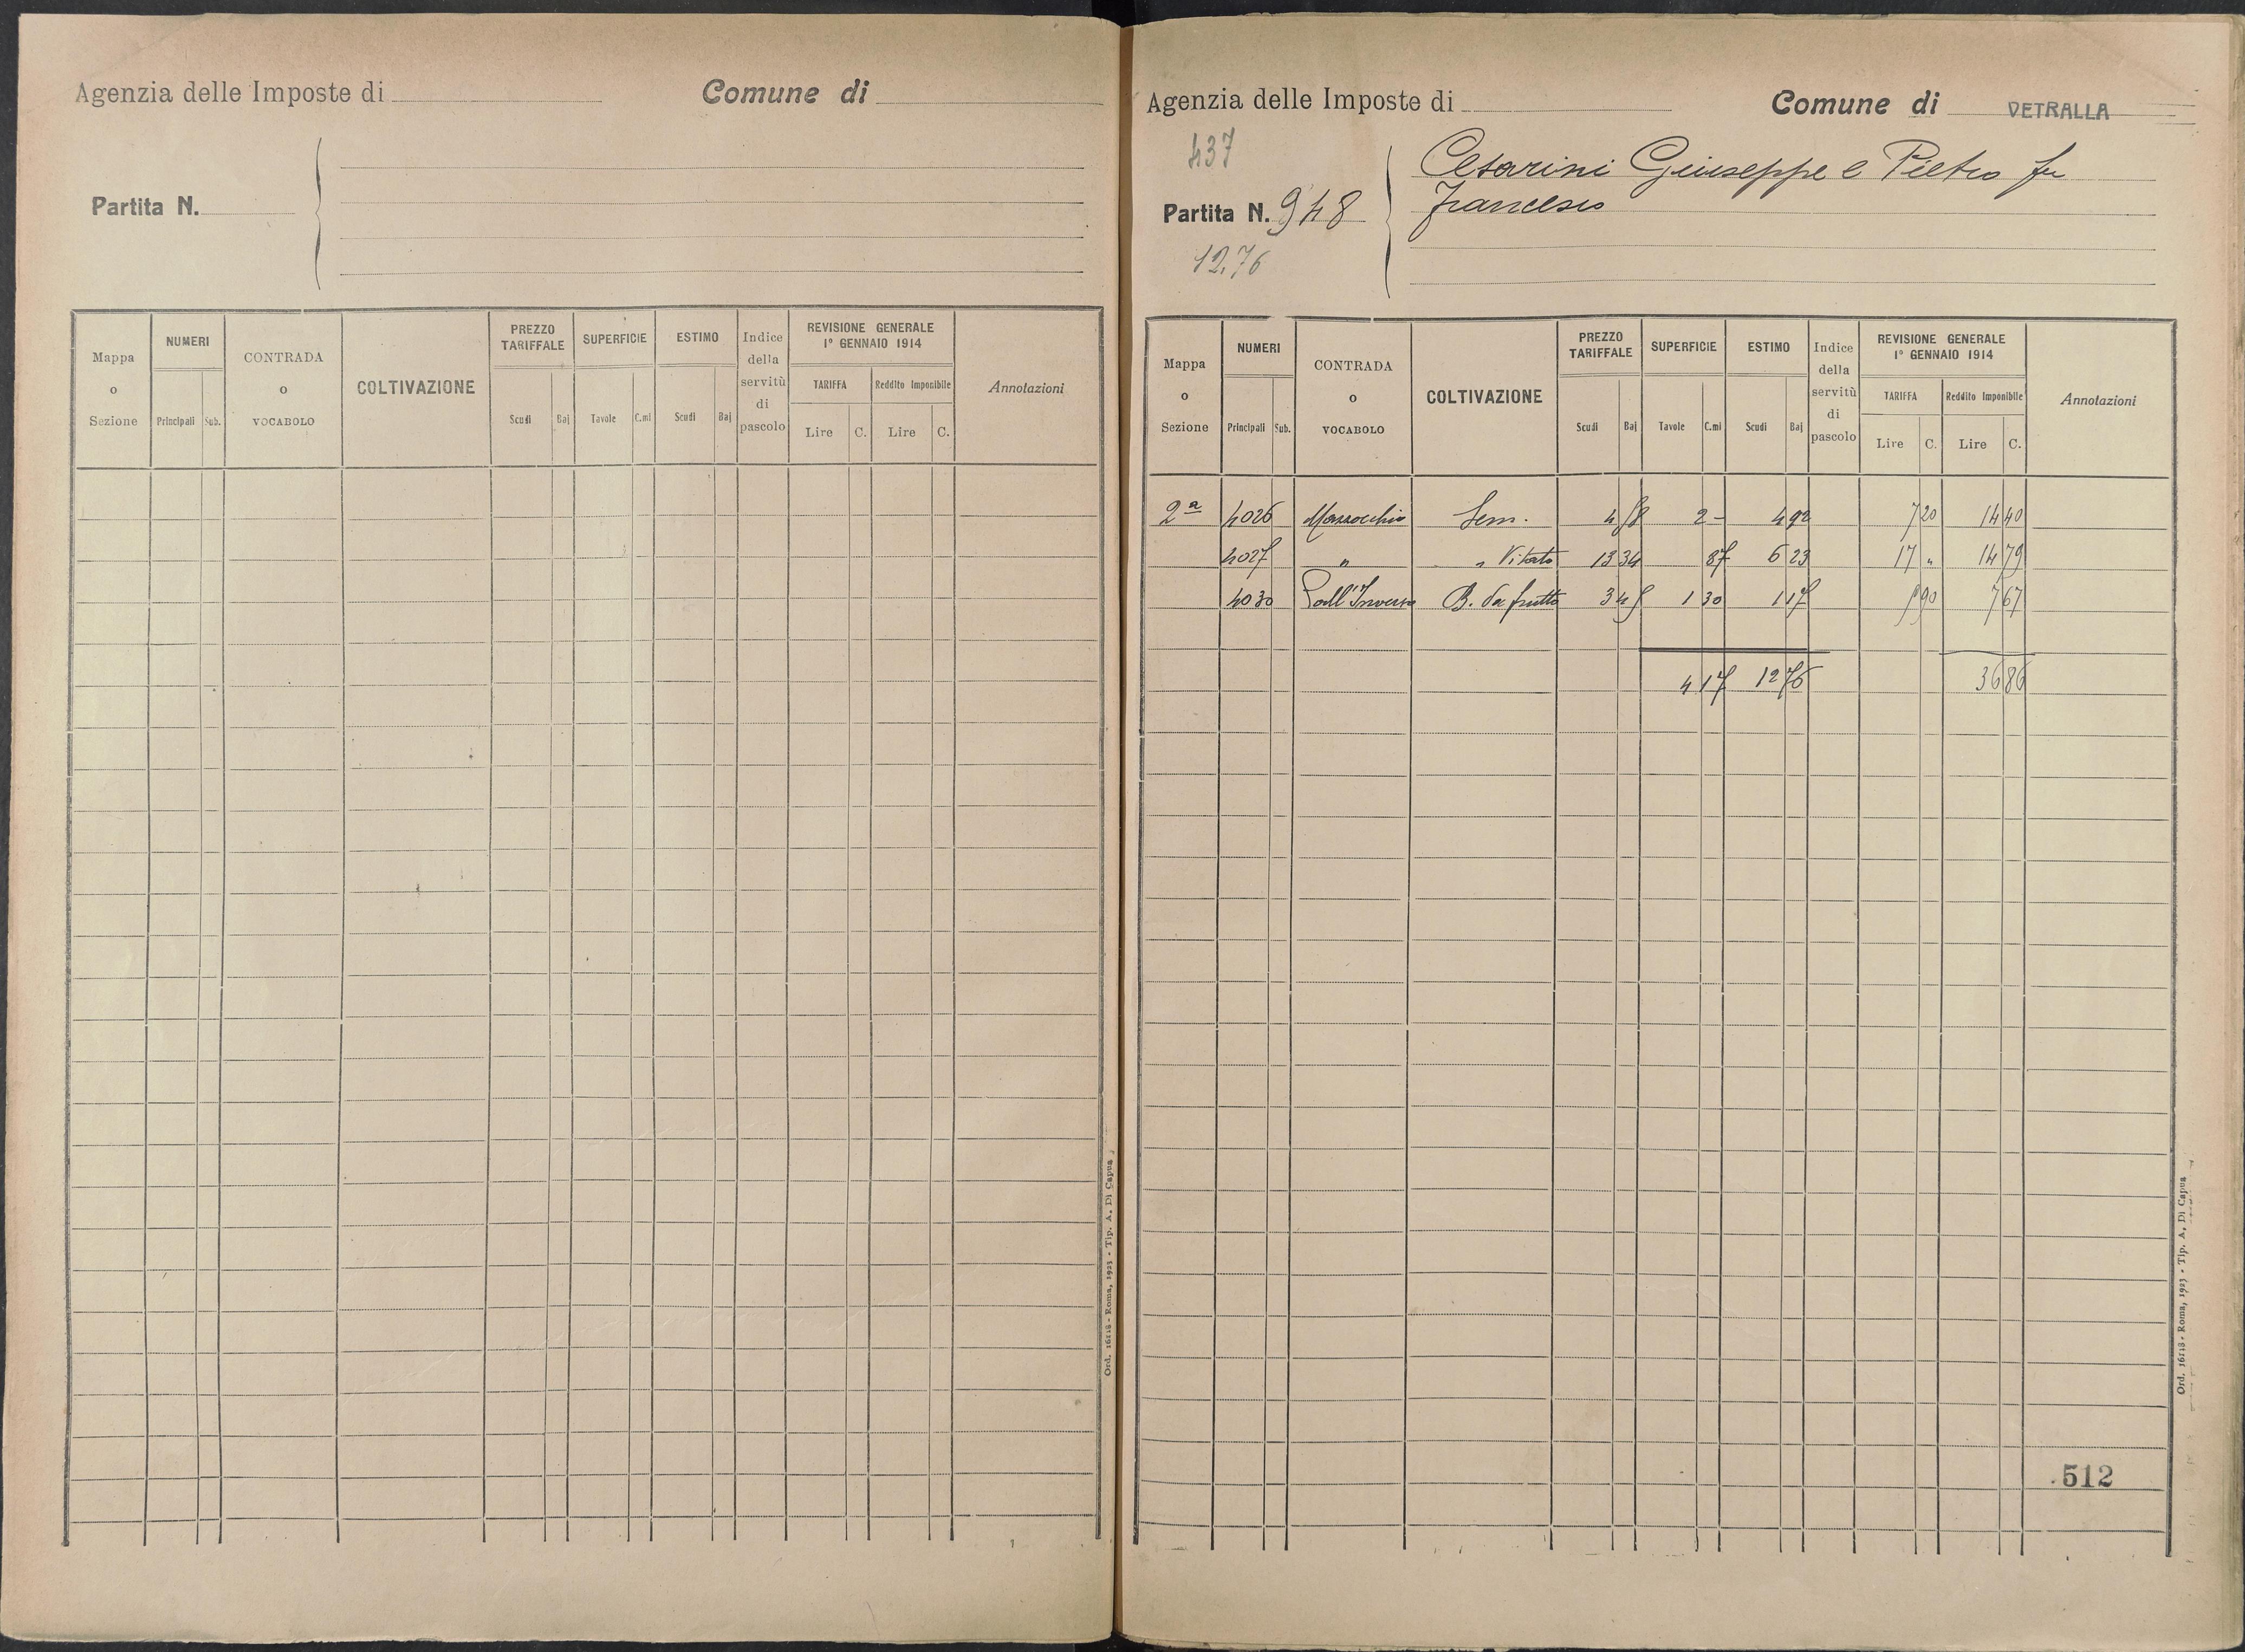 Agenzia delle Imposte di
Comune di
Partita N.
Mappa o Sezione
NUMERI
Principali Sub.
CONTRADA o VOCABOLO
COLTIVAZIONE
PREZZO TARIFFALE
Scudi Baj
SUPERFICIE
Tavole C.mi
ESTIMO
Scudi Baj
Indice della servitù di pascolo
REVISIONE GENERALE
1° GENNAIO 1914
TARIFFA Reddito Imponibile
Lire C. Lire C.
Annotazioni
Ord. 16118 - Roma, 1923 - Tip. A. Di Capua
Agenzia delle Imposte di
Comune di VETRALLA
437
Partita N. 948
12.76
Cesarini Giuseppe e Pietro fu
Francesco
Mappa o Sezione
NUMERI
Principali Sub.
CONTRADA o VOCABOLO
COLTIVAZIONE
PREZZO TARIFFALE
Scudi Baj
SUPERFICIE
Tavole C.mi
ESTIMO
Scudi Baj
Indice della servitù di pascolo
REVISIONE GENERALE
1° GENNAIO 1914
TARIFFA Reddito Imponibile
Lire C. Lire C.
Annotazioni
2a 4026 Sem. 2 - 4 92 7 20 14 40
4027 " " Vitato 13 34 87 6 23 17 " 14 79
4030 B. da frutto 1 30 1 17 5 90 7 67
4 17 12 76 36 86
512
Ord. 16118 - Roma, 1923 - Tip. A. Di Capua